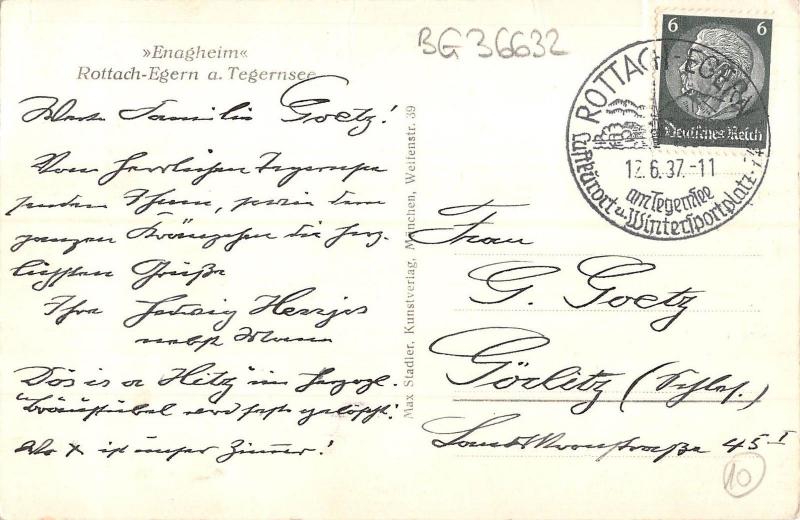 BG 36632
»Enagheim«
Rottach-Egern a. Tegernsee
Werte Familie Goetz!
Vom herrlichen Tegernsee
senden Ihnen, sowie dem
ganzen Kränzchen die herz-
lichsten Grüße
Ihre Hedwig
nebst Mann
Dös is a Hitz' im herzogl.
Bräustübel wird fest gelöscht!
Wo x ist unser Zimmer!
Max Stadler, Kunstverlag, München, Welfenstr. 39
6 6
Deutsches Reich
ROTTACH-EGERN
12.6.37.-11
am Tegernsee
Luftkurort u. Wintersportplatz
Frau
G. Goetz
Görlitz (Schles.)
Landskronstraße 45 I
10